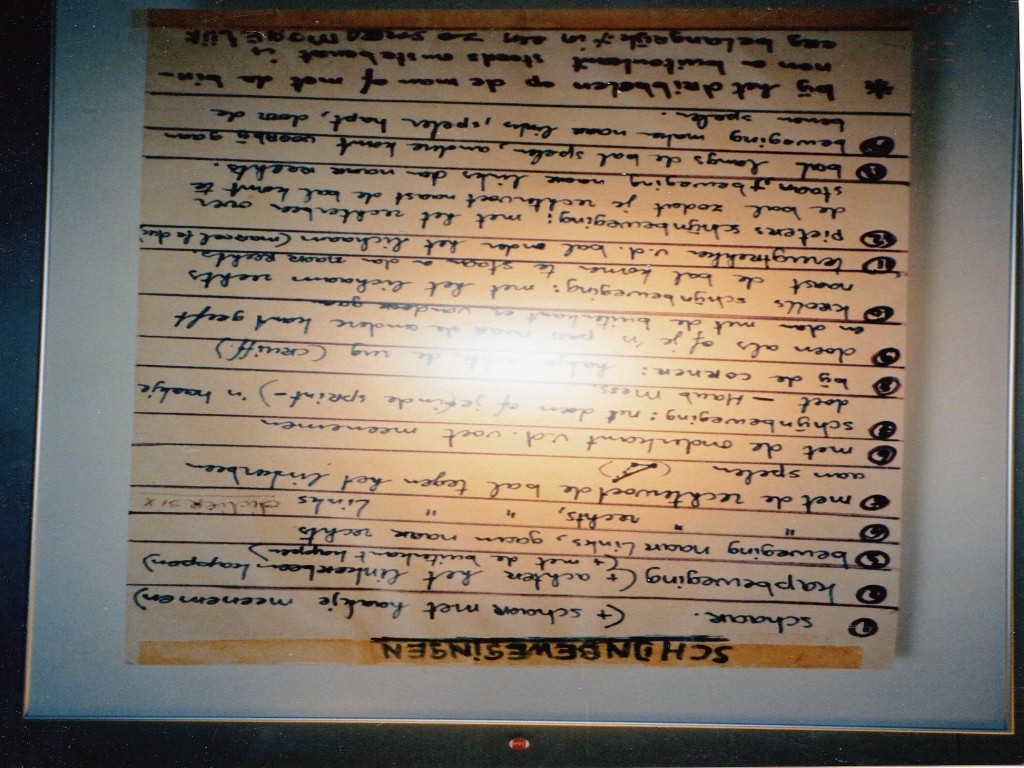 SCHIJNBEWEGINGEN
1 schaar. (+ schaar met haakje meenemen)
2 kapbeweging (+ achter het linkerbeen kappen)
(+ met de buitenkant kappen)
3 beweging naar links, gaan naar rechts
" " rechts, " " links
met de rechtervoet de bal tegen het linkerbeen
aan spelen
6 met de onderkant v.d. voet meenemen
7 schijnbeweging: net doen of je einde sprint -) 'n haakje
doet - Haub Mess.
8 bij de corner: hakje de rug (cruijff)
9 doen als of je 'n pass naar de andere kant geeft
en dan met de buitenkant er vandoor gaan
10 krolls schijnbeweging: met het lichaam rechts
naast de bal komen te staan en dan naar rechts.
11 terugtrekken v.d. bal onder het lichaam
12 pieters schijnbeweging: met het rechterbeen over
de bal zodat je rechtervoet naast de bal komt te
staan, beweging naar links dan naar rechts.
bal langs de bal speler, andere kant voorbij gaan
beweging maken naar links, speler hapt, door de
benen spelen.
* bij het dribbelen op de man af met de bin-
nen en buitenkant steeds
erg belangrijk in een zo SNEL MOGELIJK